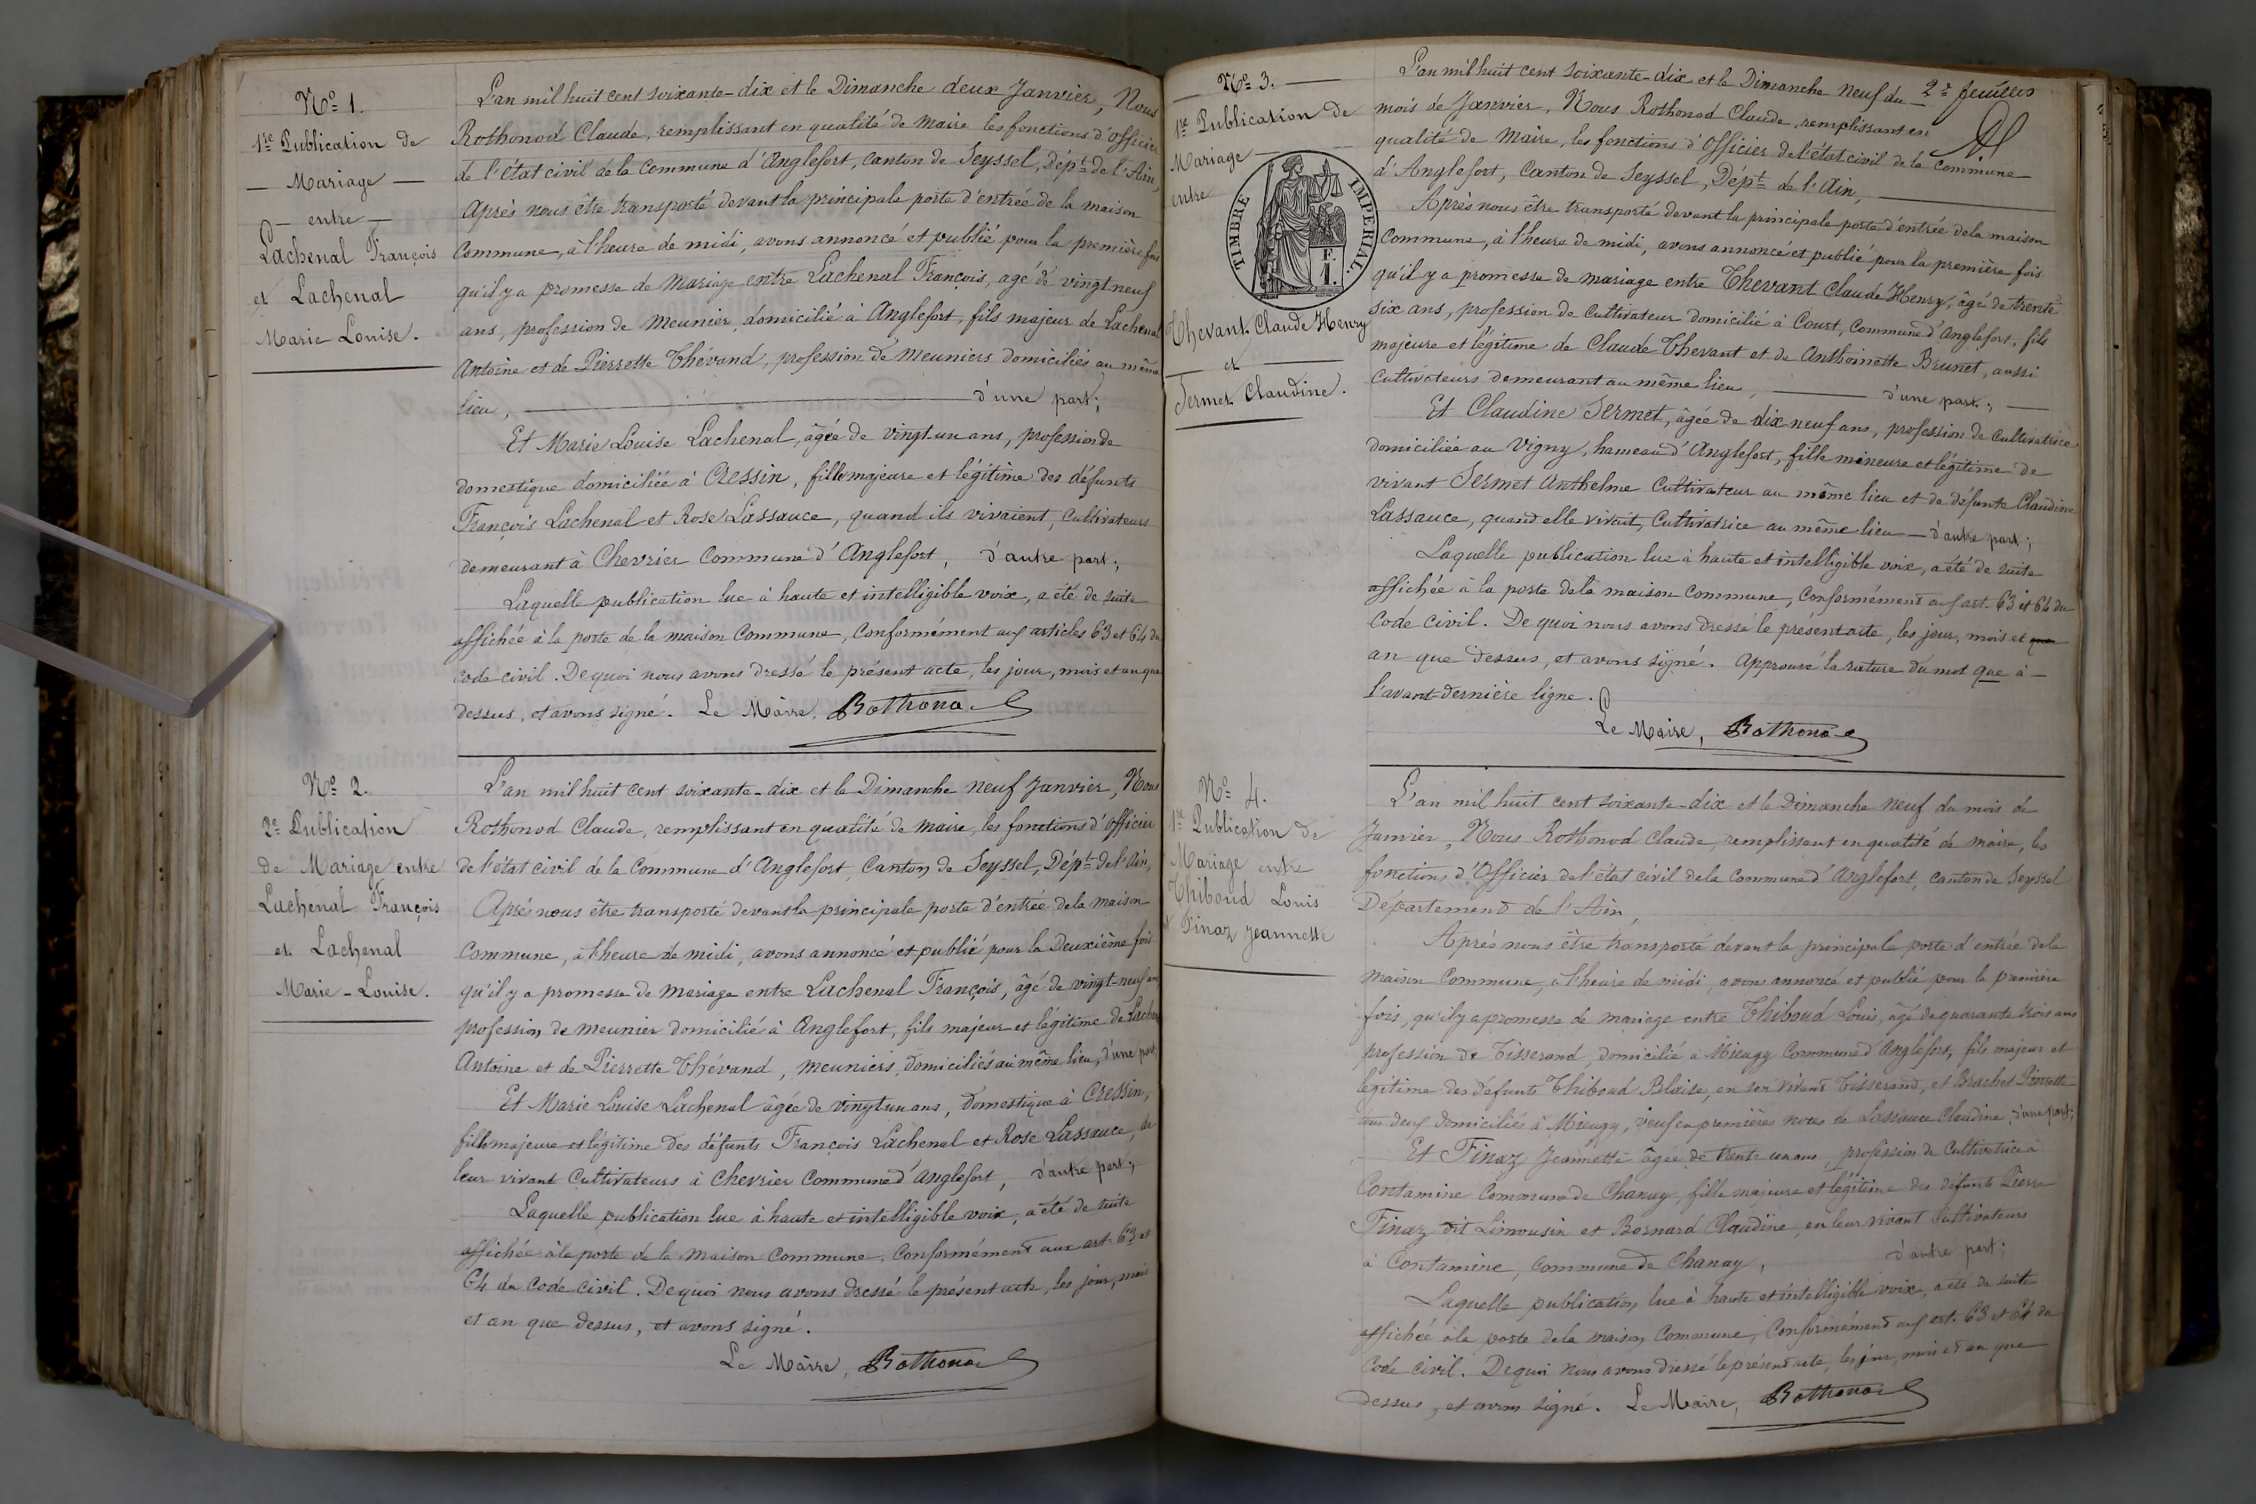 Nº 1.
1re Publication de
— Mariage —
— entre —
Lachenal François
et Lachenal
Marie Louise.
L'an mil huit cent soixante-dix et le Dimanche deux Janvier, Nous
Rothonod Claude, remplissant en qualité de Maire les fonctions d'officier
de l'état civil de la Commune d'Anglefort, canton de Seyssel, Dépt de l'Ain,
Après nous être transporté devant la principale porte d'entrée de la maison
Commune, à l'heure de midi, avons annoncé et publié pour la première fois
qu'il y a promesse de Mariage entre Lachenal François, agé de vingt neuf
ans, profession de Meunier, domicilié à Anglefort, fils majeur de Lachenal
Antoine et de Pierrette Thévand, profession de Meuniers domiciliés au même
lieu, — d'une part;
Et Marie Louise Lachenal, âgée de vingt un ans, profession de
domestique domiciliée à Cressin, fille majeure et légitime des défunts
François Lachenal et Rose Lassauce, quand ils vivaient, Cultivateurs
demeurant à Chevrier Commune d'Anglefort, d'autre part;
Laquelle publication lue à haute et intelligible voix, a été de suite
affichée à la porte de la maison Commune, Conformément aux articles 63 et 64 du
Code civil. De quoi nous avons dressé le présent acte, les jour, mois et an que
dessus, et avons signé. Le Maire, Rothonod
Nº 2.
2e Publication
de Mariage entre
Lachenal François
et Lachenal
Marie-Louise.
L'an mil huit cent soixante-dix et le Dimanche neuf Janvier, Nous
Rothonod Claude, remplissant en qualité de maire, les fonctions d'officier
de l'état civil de la Commune d'Anglefort, Canton de Seyssel, Dépt de l'Ain,
Après nous être transporté devant la principale porte d'entrée de la maison
Commune, à l'heure de midi, avons annoncé et publié pour la Deuxième fois
qu'il y a promesse de Mariage entre Lachenal François, âgé de vingt-neuf ans
profession de meunier domicilié à Anglefort, fils majeur et légitime de Lachenal
Antoine et de Pierrette Thévand, meuniers, domiciliés au même lieu, d'une part
Et Marie Louise Lachenal âgée de vingt un ans, domestique à Cressin,
fille majeure et légitime des défunts François Lachenal et Rose Lassauce, de
leur vivant Cultivateurs à Chevrier Commune d'Anglefort, d'autre part;
Laquelle publication lue à haute et intelligible voix, a été de suite
affichée à la porte de la maison Commune, Conformément aux art. 63 et
64 du Code civil. De quoi nous avons dressé le présent acte, les jour, mois
et an que dessus, et avons signé.
Le Maire, Rothonod
2e feuillet
Nº 3.
1re Publication de
Mariage
entre
TIMBRE IMPERIAL.
F. 1.
Thevant Claude Henry
et
Sermet Claudine.
L'an mil huit cent soixante-dix et le Dimanche neuf du
mois de Janvier, Nous Rothonod Claude, remplissant en
qualité de Maire, les fonctions d'Officier de l'état civil de la Commune
d'Anglefort, Canton de Seyssel, Dépt de l'Ain,
Après nous être transporté devant la principale porte d'entrée de la maison
Commune, à l'heure de midi, avons annoncé et publié pour la première fois
qu'il y a promesse de mariage entre Thevant Claude Henry, âgé de trente
six ans, profession de Cultivateur domicilié à Court, Commune d'Anglefort, fils
majeure et légitime de Claude Thevant et de Anthoinette Brunet, aussi
Cultivateurs demeurant au même lieu, — d'une part; —
Et Claudine Sermet, âgée de dix neuf ans, profession de Cultivatrice
domiciliée au Vigny, hameau d'Anglefort, fille mineure et légitime de
vivant Sermet Anthelme Cultivateur au même lieu et de défunte Claudine
Lassauce, quand elle vivait, Cultivatrice au même lieu — d'autre part;
Laquelle publication lue à haute et intelligible voix, a été de suite
affichée à la porte de la maison Commune, Conformément aux art. 63 et 64 du
Code civil. De quoi nous avons dressé le présent acte, les jour, mois et que
an que dessus, et avons signé. Approuvé la rature du mot que à —
l'avant-dernière ligne.
Le Maire, Rothonod
Nº 4.
1re Publication de
Mariage entre
Thiboud Louis
et Finaz Jeannette
L'an mil huit cent soixante-dix et le Dimanche neuf du mois de
Janvier, Nous Rothonod Claude, remplissant en qualité de maire, les
fonctions d'Officier de l'état civil de la Commune d'Anglefort, canton de Seyssel
Département de l'Ain,
Après nous être transporté devant la principale porte d'entrée de la
maison Commune, à l'heure de midi, avons annoncé et publié pour la première
fois, qu'il y a promesse de mariage entre Thiboud Louis, âgé de quarante trois ans
profession de Tisserand, domicilié à Mieugy Commune d'Anglefort, fils majeur et
légitime des défunts Thiboud Blaise, en son vivant Tisserand, et Brachet Pierrette
tous deux domiciliés à Mieugy, veuf en premières noces de Lassauce Claudine, d'une part;
Et Finaz Jeannette âgée de trente un ans, profession de Cultivatrice à
Contamine Commune de Chanay, fille majeure et légitime des défunts Pierre
Finaz dit Limousin et Bornard Claudine, en leur vivant Cultivateurs
à Contamine, Commune de Chanay, d'autre part;
Laquelle publication lue à haute et intelligible voix, a été de suite
affichée à la porte de la maison Commune, Conformément aux art. 63 et 64 du
Code civil. De quoi nous avons dressé le présent acte, les jour, mois et an que
dessus, et avons signé. Le Maire, Rothonod